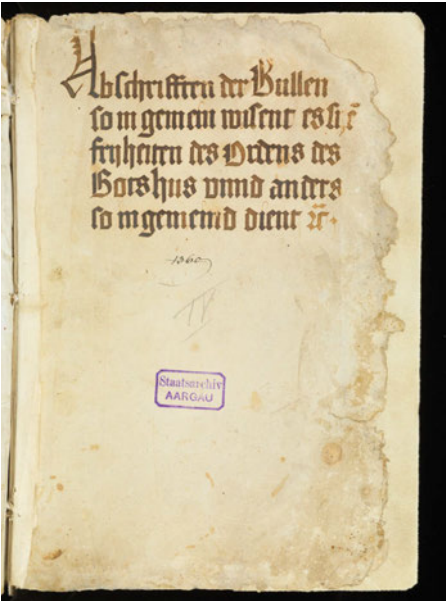 Abschrifften der Bullen
so in gemein wisent es si
fryheiten des Ordens des
Gotshus vnnd anders
so in gemeind dient
1360
IV
Staatsarchiv
AARGAU